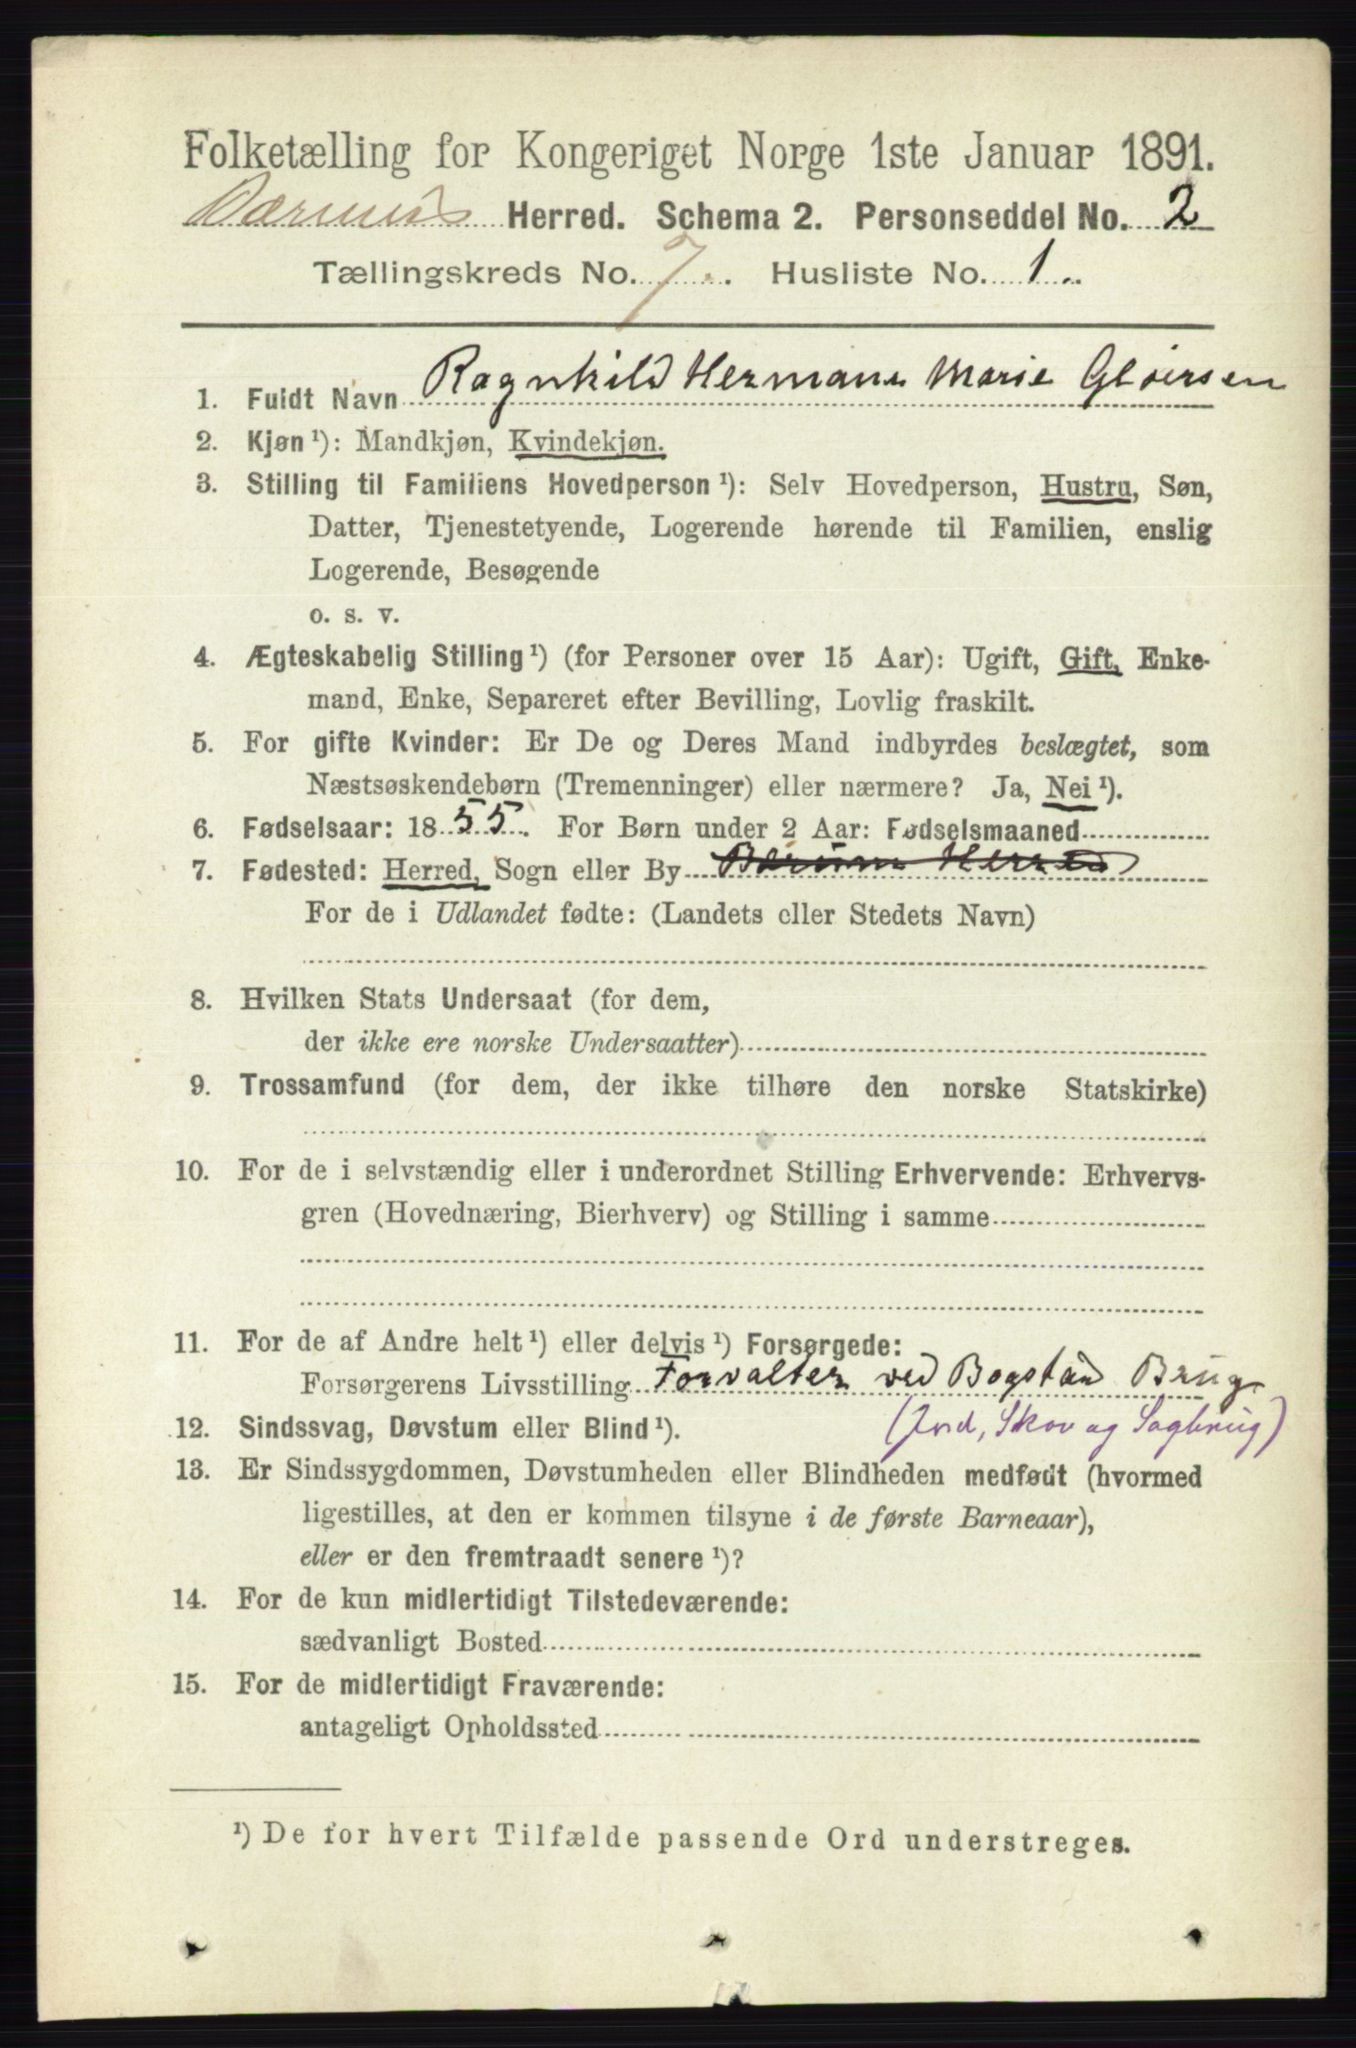 Folketælling for Kongeriget Norge 1ste Januar 1891.
Bærums Herred. Schema 2. Personseddel No. 2
Tællingskreds No. 7. Husliste No. 1.
1. Fuldt Navn Ragnhild Hermane Marie Gløersen
2. Kjøn¹): Mandkjøn, Kvindekjøn.
3. Stilling til Familiens Hovedperson¹): Selv Hovedperson, Hustru, Søn,
Datter, Tjenestetyende, Logerende hørende til Familien, enslig
Logerende, Besøgende
o. s. v.
4. Ægteskabelig Stilling¹) (for Personer over 15 Aar): Ugift, Gift, Enke-
mand, Enke, Separeret efter Bevilling, Lovlig fraskilt.
5. For gifte Kvinder: Er De og Deres Mand indbyrdes beslægtet, som
Næstsøskendebørn (Tremenninger) eller nærmere? Ja, Nei¹).
6. Fødselsaar: 1855. For Børn under 2 Aar: Fødselsmaaned
7. Fødested: Herred, Sogn eller By Bærum Herred
For de i Udlandet fødte: (Landets eller Stedets Navn)
8. Hvilken Stats Undersaat (for dem,
der ikke ere norske Undersaatter)
9. Trossamfund (for dem, der ikke tilhøre den norske Statskirke)
10. For de i selvstændig eller i underordnet Stilling Erhvervende: Erhvervs-
gren (Hovednæring, Bierhverv) og Stilling i samme
11. For de af Andre helt¹) eller delvis¹) Forsørgede:
Forsørgerens Livsstilling Forvalter ved Bogstad Brug
(Jord, Skov og Sagbrug)
12. Sindssvag, Døvstum eller Blind¹).
13. Er Sindssygdommen, Døvstumheden eller Blindheden medfødt (hvormed
ligestilles, at den er kommen tilsyne i de første Barneaar),
eller er den fremtraadt senere¹)?
14. For de kun midlertidigt Tilstedeværende:
sædvanligt Bosted
15. For de midlertidigt Fraværende:
antageligt Opholdssted
¹) De for hvert Tilfælde passende Ord understreges.